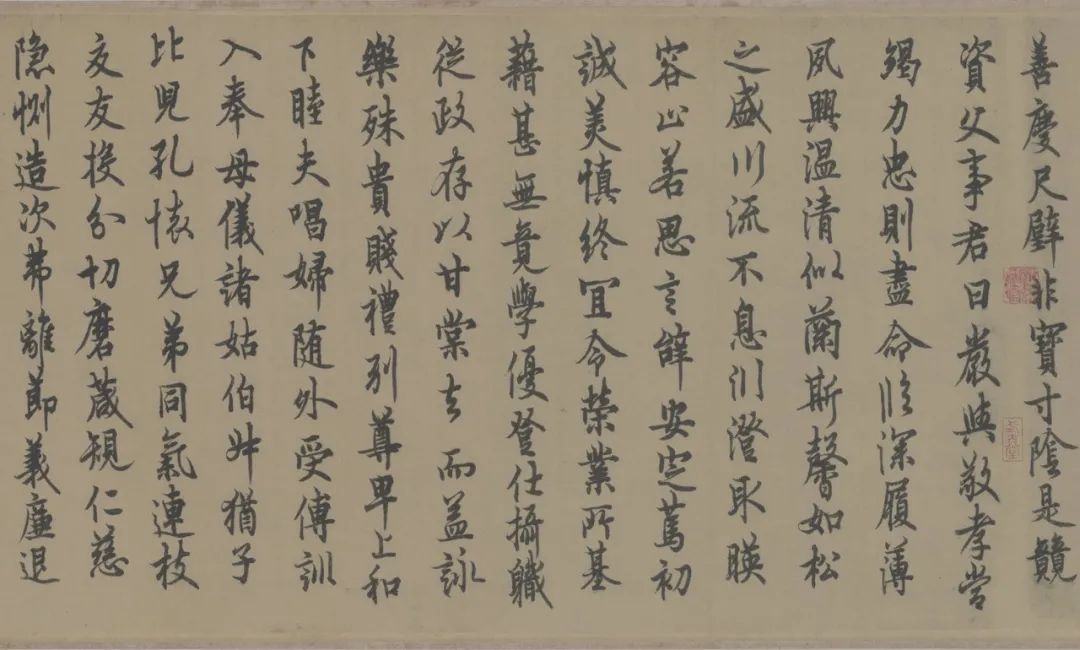 善慶尺璧非寶寸陰是競
資父事君曰嚴與敬孝當
竭力忠則盡命臨深履薄
夙興温清似蘭斯馨如松
之盛川流不息淵澄取暎
容止若思言辭安定篤初
誠美慎終宜令榮業所基
藉甚無竟學優登仕攝職
從政存以甘棠去而益詠
樂殊貴賤禮別尊卑上和
下睦夫唱婦随外受傅訓
入奉母儀諸姑伯叔猶子
比兒孔懐兄弟同氣連枝
交友投分切磨葴規仁慈
隐惻造次弗離節義廉退